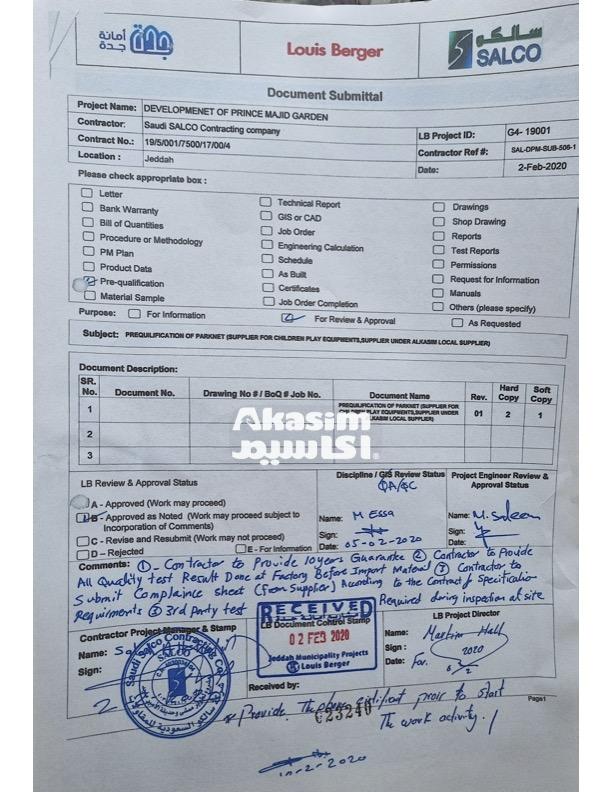 أمانة جدة
جدة
Louis Berger
سالكو
SALCO
Document Submittal
Project Name: DEVELOPMENET OF PRINCE MAJID GARDEN
Contractor: Saudi SALCO Contracting company
LB Project ID: G4- 19001
Contract No.: 19/5/001/7500/17/00/4
Contractor Ref #: SAL-DPM-SUB-506-1
Location : Jeddah
Date: 2-Feb-2020
Please check appropriate box :
Letter
Bank Warranty
Bill of Quantities
Procedure or Methodology
PM Plan
Product Data
Pre-qualification
Material Sample
Technical Report
GIS or CAD
Job Order
Engineering Calculation
Schedule
As Built
Certificates
Job Order Completion
Drawings
Shop Drawing
Reports
Test Reports
Permissions
Request for Information
Manuals
Others (please specify)
Purpose: For Information For Review & Approval As Requested
Subject: PREQUILIFICATION OF PARKNET (SUPPLIER FOR CHILDREN PLAY EQUIPMENTS,SUPPLIER UNDER ALKASIM LOCAL SUPPLIER)
Document Description:
SR. No. Document No. Drawing No # / BoQ # Job No. Document Name Rev. Hard Copy Soft Copy
1 PREQUILIFICATION OF PARKNET (SUPPLIER FOR CHILDREN PLAY EQUIPMENTS,SUPPLIER UNDER ALKASIM LOCAL SUPPLIER) 01 2 1
2
3
Akasim
اكاسيم
LB Review & Approval Status
A - Approved (Work may proceed)
B - Approved as Noted (Work may proceed subject to
Incorporation of Comments)
C - Revise and Resubmit (Work may not proceed)
D – Rejected E - For Information
Discipline / GIS Review Status
QA/QC
Name: M Essa
Sign:
Date: 05-02-2020
Project Engineer Review &
Approval Status
Name: M. Saleem
Sign:
Date:
Comments: ①- Contractor to Provide 10 years Guarantee ② Contractor to Provide
All Quality test Result Done at Factory Before Import Material ③ Contractor to
Submit Complaince sheet (from Supplier) According to the Contract Specification
Requirments ④ 3rd Party test Required during inspection at site
Contractor Project Manager & Stamp
Name:
Sign:
Saudi Salco Contracting Co.
SALCO
RECEIVED
LB Document Control Stamp
02 FEB 2020
Jeddah Municipality Projects
Louis Berger
Received by:
LB Project Director
Name: Martin Hall
Sign :
Date: For.
2020
* Provide The certificat prior to start
The work activity.
C23240
Page1
10-2-2020